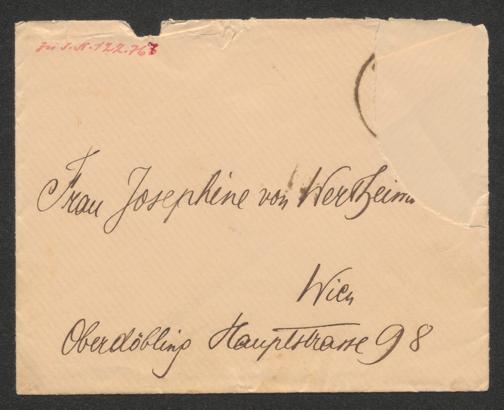 zu I.N. 122.767
Frau Josephine von Wertheim
Wien
Oberdöbling Hauptstrasse 98